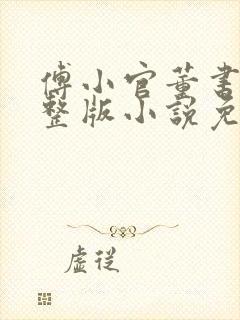 傅小官董書
整版小說免
虛從